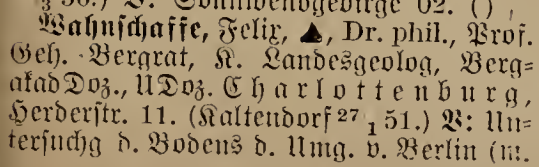 Wahnschaffe, Felix, ▲, Dr. phil., Prof.
Geh. Bergrat, K. Landesgeolog, Berg=
akadDoz., UDoz. Charlottenburg,
Herderstr. 11. (Kaltendorf 27 1 51.) V: Un=
tersuchg d. Bodens d. Umg. v. Berlin (m.